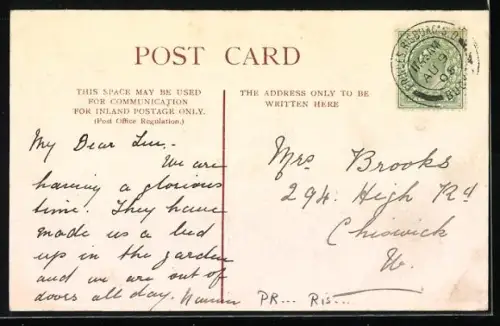 POST CARD
THIS SPACE MAY BE USED
FOR COMMUNICATION
FOR INLAND POSTAGE ONLY.
(Post Office Regulation.)
THE ADDRESS ONLY TO BE
WRITTEN HERE
My Dear
We are
having a glorious
time. They have
made us a bed
up in the garden
and we are out of
doors all day.
Mrs Brooks
294. High Rd
Chiswick
W.
PR... Ris...
AU 9